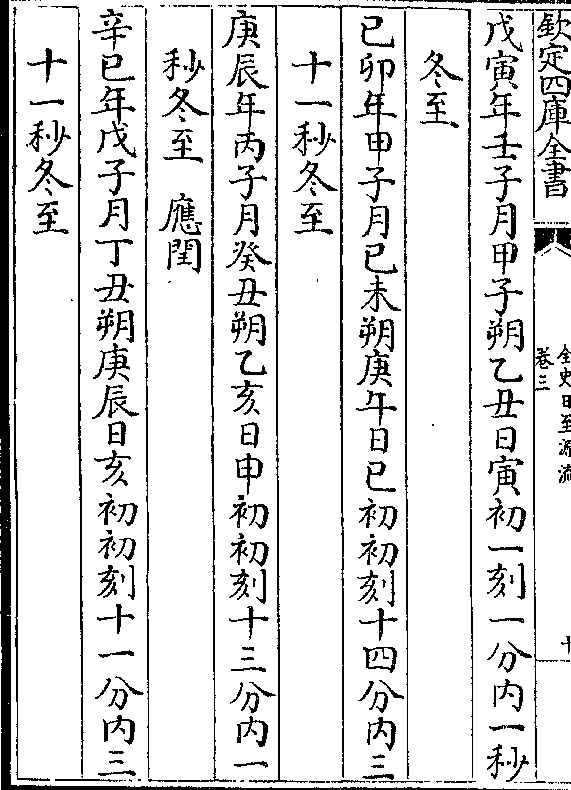 欽定四庫全書
全史日至源流
卷三
戊寅年壬子月甲子朔乙丑日寅初一刻一分内一秒
冬至
己卯年甲子月己未朔庚午日巳初初刻十四分内三
十一秒冬至
庚辰年丙子月癸丑朔乙亥日申初初刻十三分内一
秒冬至　應閏
辛巳年戊子月丁丑朔庚辰日亥初初刻十一分内三
十一秒冬至